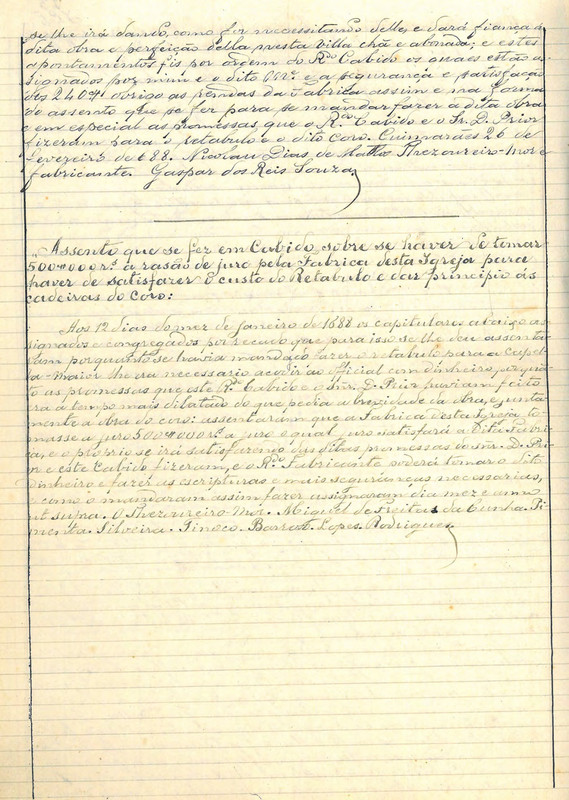 se lhe irá dando, como for necessitando delle, e dará fiança á
dita obra e perfeição della nesta Villa chã e abonada; e estes
apontamentos fis por ordem do R.do Cabido os quaes estão as-
signados por mim e o dito
e a segurança e satisfação
dos 240# obrigo as rendas da Fabrica assim e na forma
do assento que se fez para se mandar fazer a dita obra
e em especial as promessas que o R.do Cabido e o Sr. D. Prior
fizeram para o retabulo e o dito coro. Guimarães 26 de
Fevereiro de 688. Nicolau Dias de Mattos Thezoureiro-Mor e
fabricante. Gaspar dos Reis Souza.
"Assento que se fez em Cabido sobre se haver de tomar
500#000 r.s á rasão de juro pela Fabrica desta Igreja para
haver de satisfazer o custo do Retabulo e dar principio ás
cadeiras do Coro:
Aos 12 dias do mez de janeiro de 1688 os capitulares abaixo as-
signados e congregados por recado que para isso se lhe deu assenta-
ram porquanto se havia mandado fazer o retabulo para a Capel-
la-Maior lhe era necessario acodir ao official com dinheiro, porquan-
to as promessas que este R.do Cabido e o Snr. D. Prior haviam feito
era a tempo mais dilatado do que pedia a brevidade da obra, e junta-
mente a obra do coro: assentaram que a Fabrica desta Igreja to-
masse a juro 500#000 r.s a juro o qual juro satisfará a dita Fabri-
ca, e o proprio se irá satisfazendo das ditas promessas do snr. D. Pri-
or e este Cabido fizeram, e o R.do Fabricante poderá tomar o dito
dinheiro e fazer as escripturas e mais seguranças necessarias,
e como o mandaram assim fazer assignaram dia mez e anno
ut supra. O Thezoureiro-Mór. Miguel de Freitas da Cunha. Pi-
menta. Silveira. Tinoco. Barros. Lopes. Rodrigues.